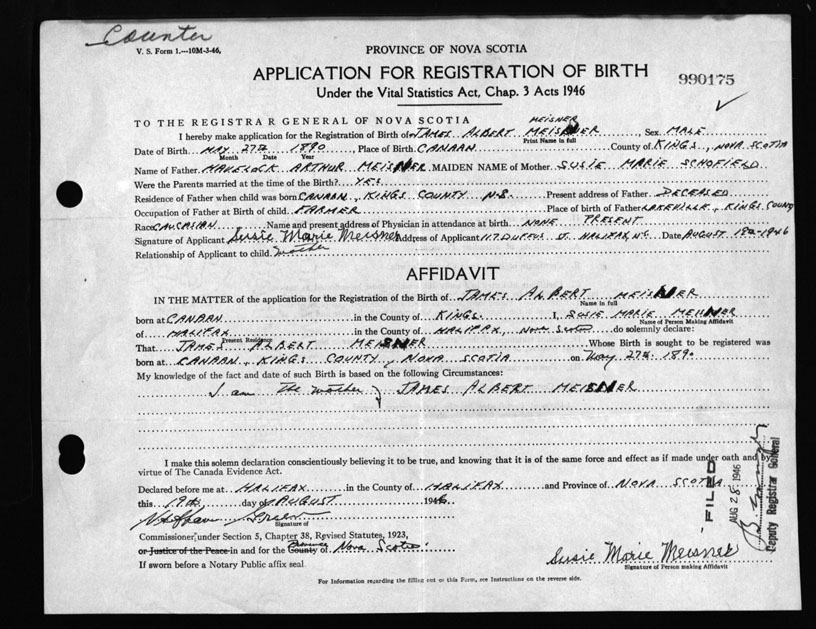 Counter
V. S. Form 1.—10M-3-46,
PROVINCE OF NOVA SCOTIA
APPLICATION FOR REGISTRATION OF BIRTH
990175
Under the Vital Statistics Act, Chap. 3 Acts 1946
TO THE REGISTRAR GENERAL OF NOVA SCOTIA
MEISNER
I hereby make application for the Registration of Birth of JAMES ALBERT MEISNER, Sex MALE
Print Name in full
Date of Birth MAY 27TH 1890, Place of Birth CANAAN County of KINGS, NOVA SCOTIA
Month Date Year
Name of Father HAVELOCK ARTHUR MEISNER MAIDEN NAME of Mother SUSIE MARIE SCHOFIELD
Were the Parents married at the time of the Birth? YES
Residence of Father when child was born CANAAN, KINGS COUNTY N.S. Present address of Father DECEASED
Occupation of Father at Birth of child FARMER Place of birth of Father LAKEVILLE, KINGS COUNTY
Race CAUCASIAN Name and present address of Physician in attendance at birth NONE PRESENT
Signature of Applicant Susie Marie Meisner Address of Applicant 117 DUFFUS ST. HALIFAX, N.S. Date AUGUST 19TH-1946
Relationship of Applicant to child mother
AFFIDAVIT
IN THE MATTER of the application for the Registration of the Birth of JAMES ALBERT MEISNER
Name in full
born at CANAAN in the County of KINGS. I, SUSIE MARIE MEISNER
Name of Person Making Affidavit
of HALIFAX in the County of HALIFAX, Nova Scotia do solemnly declare:
Present Residence
That JAMES ALBERT MEISNER Whose Birth is sought to be registered was
born at CANAAN, KINGS COUNTY, NOVA SCOTIA on May 27th 1890
My knowledge of the fact and date of such Birth is based on the following Circumstances:
I am the mother of JAMES ALBERT MEISNER
I make this solemn declaration conscientiously believing it to be true, and knowing that it is of the same force and effect as if made under oath and by
virtue of The Canada Evidence Act.
Declared before me at HALIFAX in the County of HALIFAX and Province of NOVA SCOTIA
this 19th day of AUGUST 1946
Signature of
Commissioner, under Section 5, Chapter 38, Revised Statutes, 1923,
or Justice of the Peace in and for the County of Province Nova Scotia
If sworn before a Notary Public affix seal
Susie Marie Meisner
Signature of Person making Affidavit
For Information regarding the filling out of this Form, see Instructions on the reverse side.
- FILED -
AUG 28 1946
Deputy Registrar General